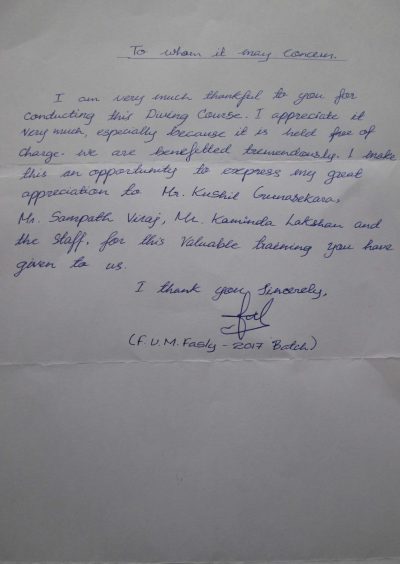 To whom it may concern.
I am very much thankful to you for
conducting this Diving Course. I appreciate it
very much, especially because it is held free of
charge. we are benefitted tremendously. I make
this an opportunity to express my great
appreciation to Mr. Kushil Gunasekara,
Mr. Sampath Viraj, Mr. Kaminda Lakshan and
the staff, for this valuable training you have
given to us.
I thank you sincerely,
(F.U.M. Fasly - 2017 Batch)